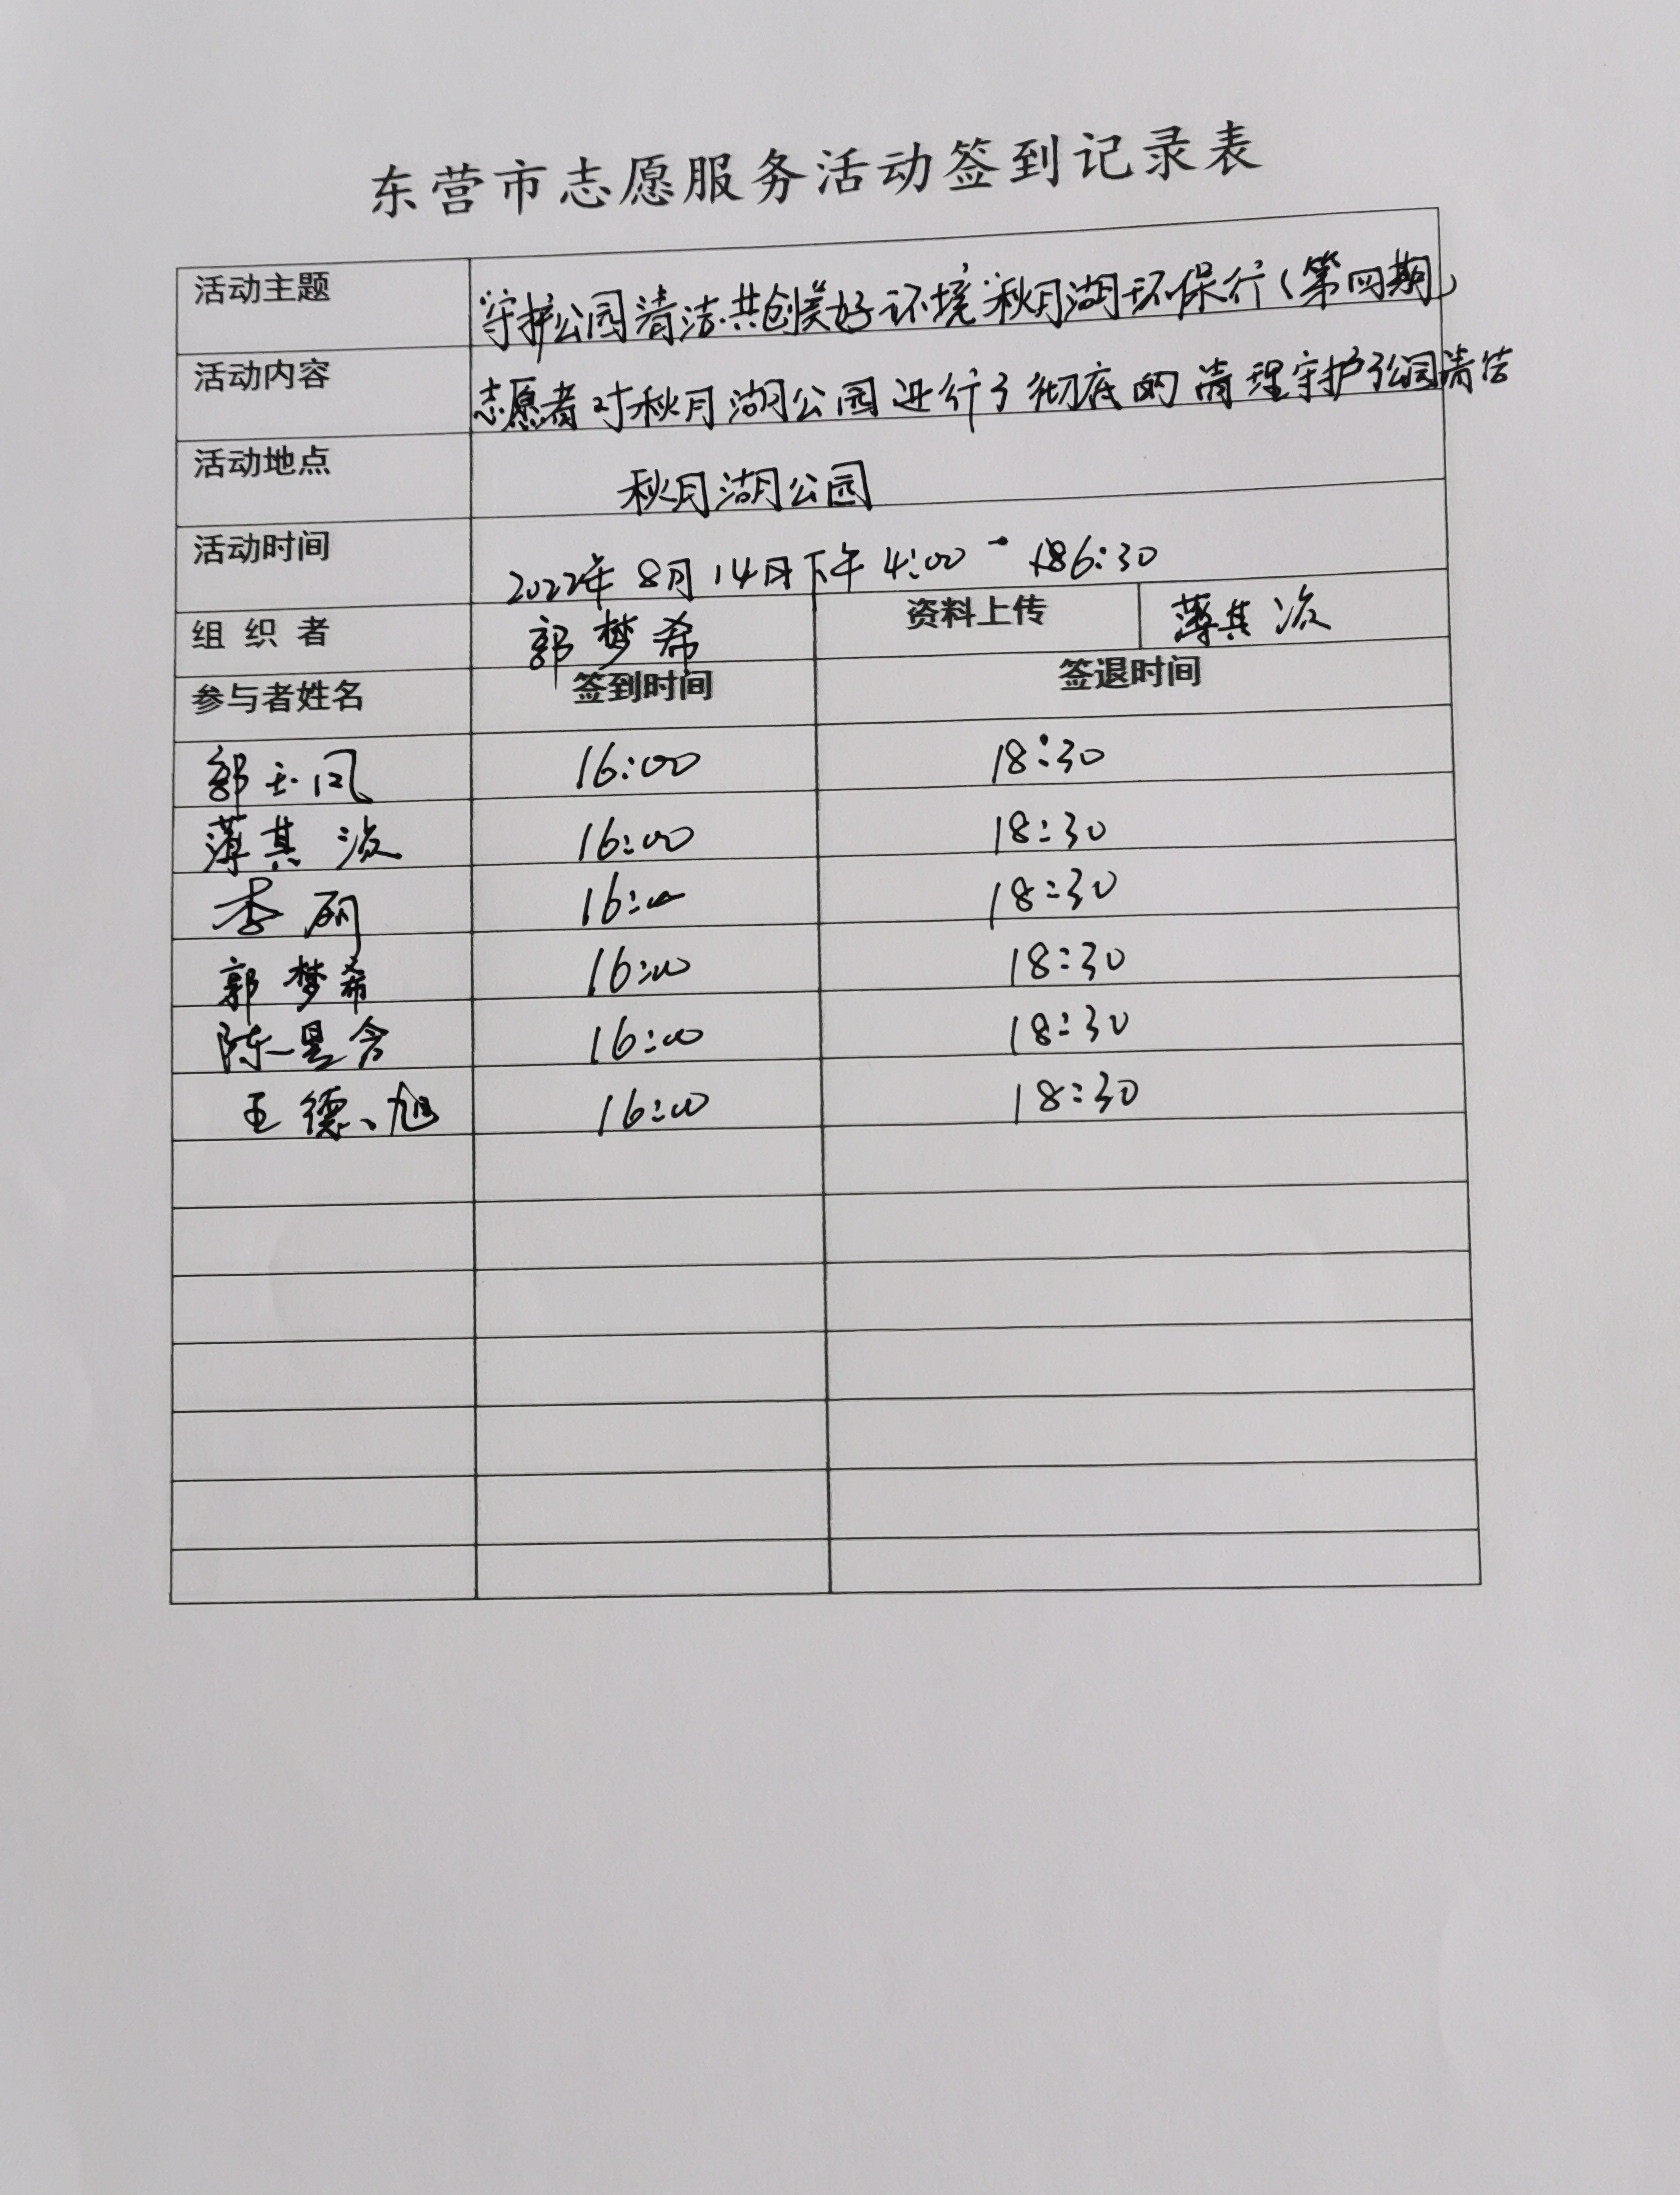 东营市志愿服务活动签到记录表
活动主题 守护公园清洁共创美好环境秋月湖环保行（第四期）
活动内容 志愿者对秋月湖公园进行了彻底的清理守护公园清洁
活动地点 秋月湖公园
活动时间 2022年8月14日下午4:00-6:30
组织者 郭梦希 资料上传 薄其波
参与者姓名 签到时间 签退时间
郭玉凤 16:00 18:30
薄其波 16:00 18:30
李丽 16:00 18:30
郭梦希 16:00 18:30
陈一星含 16:00 18:30
王德旭 16:00 18:30